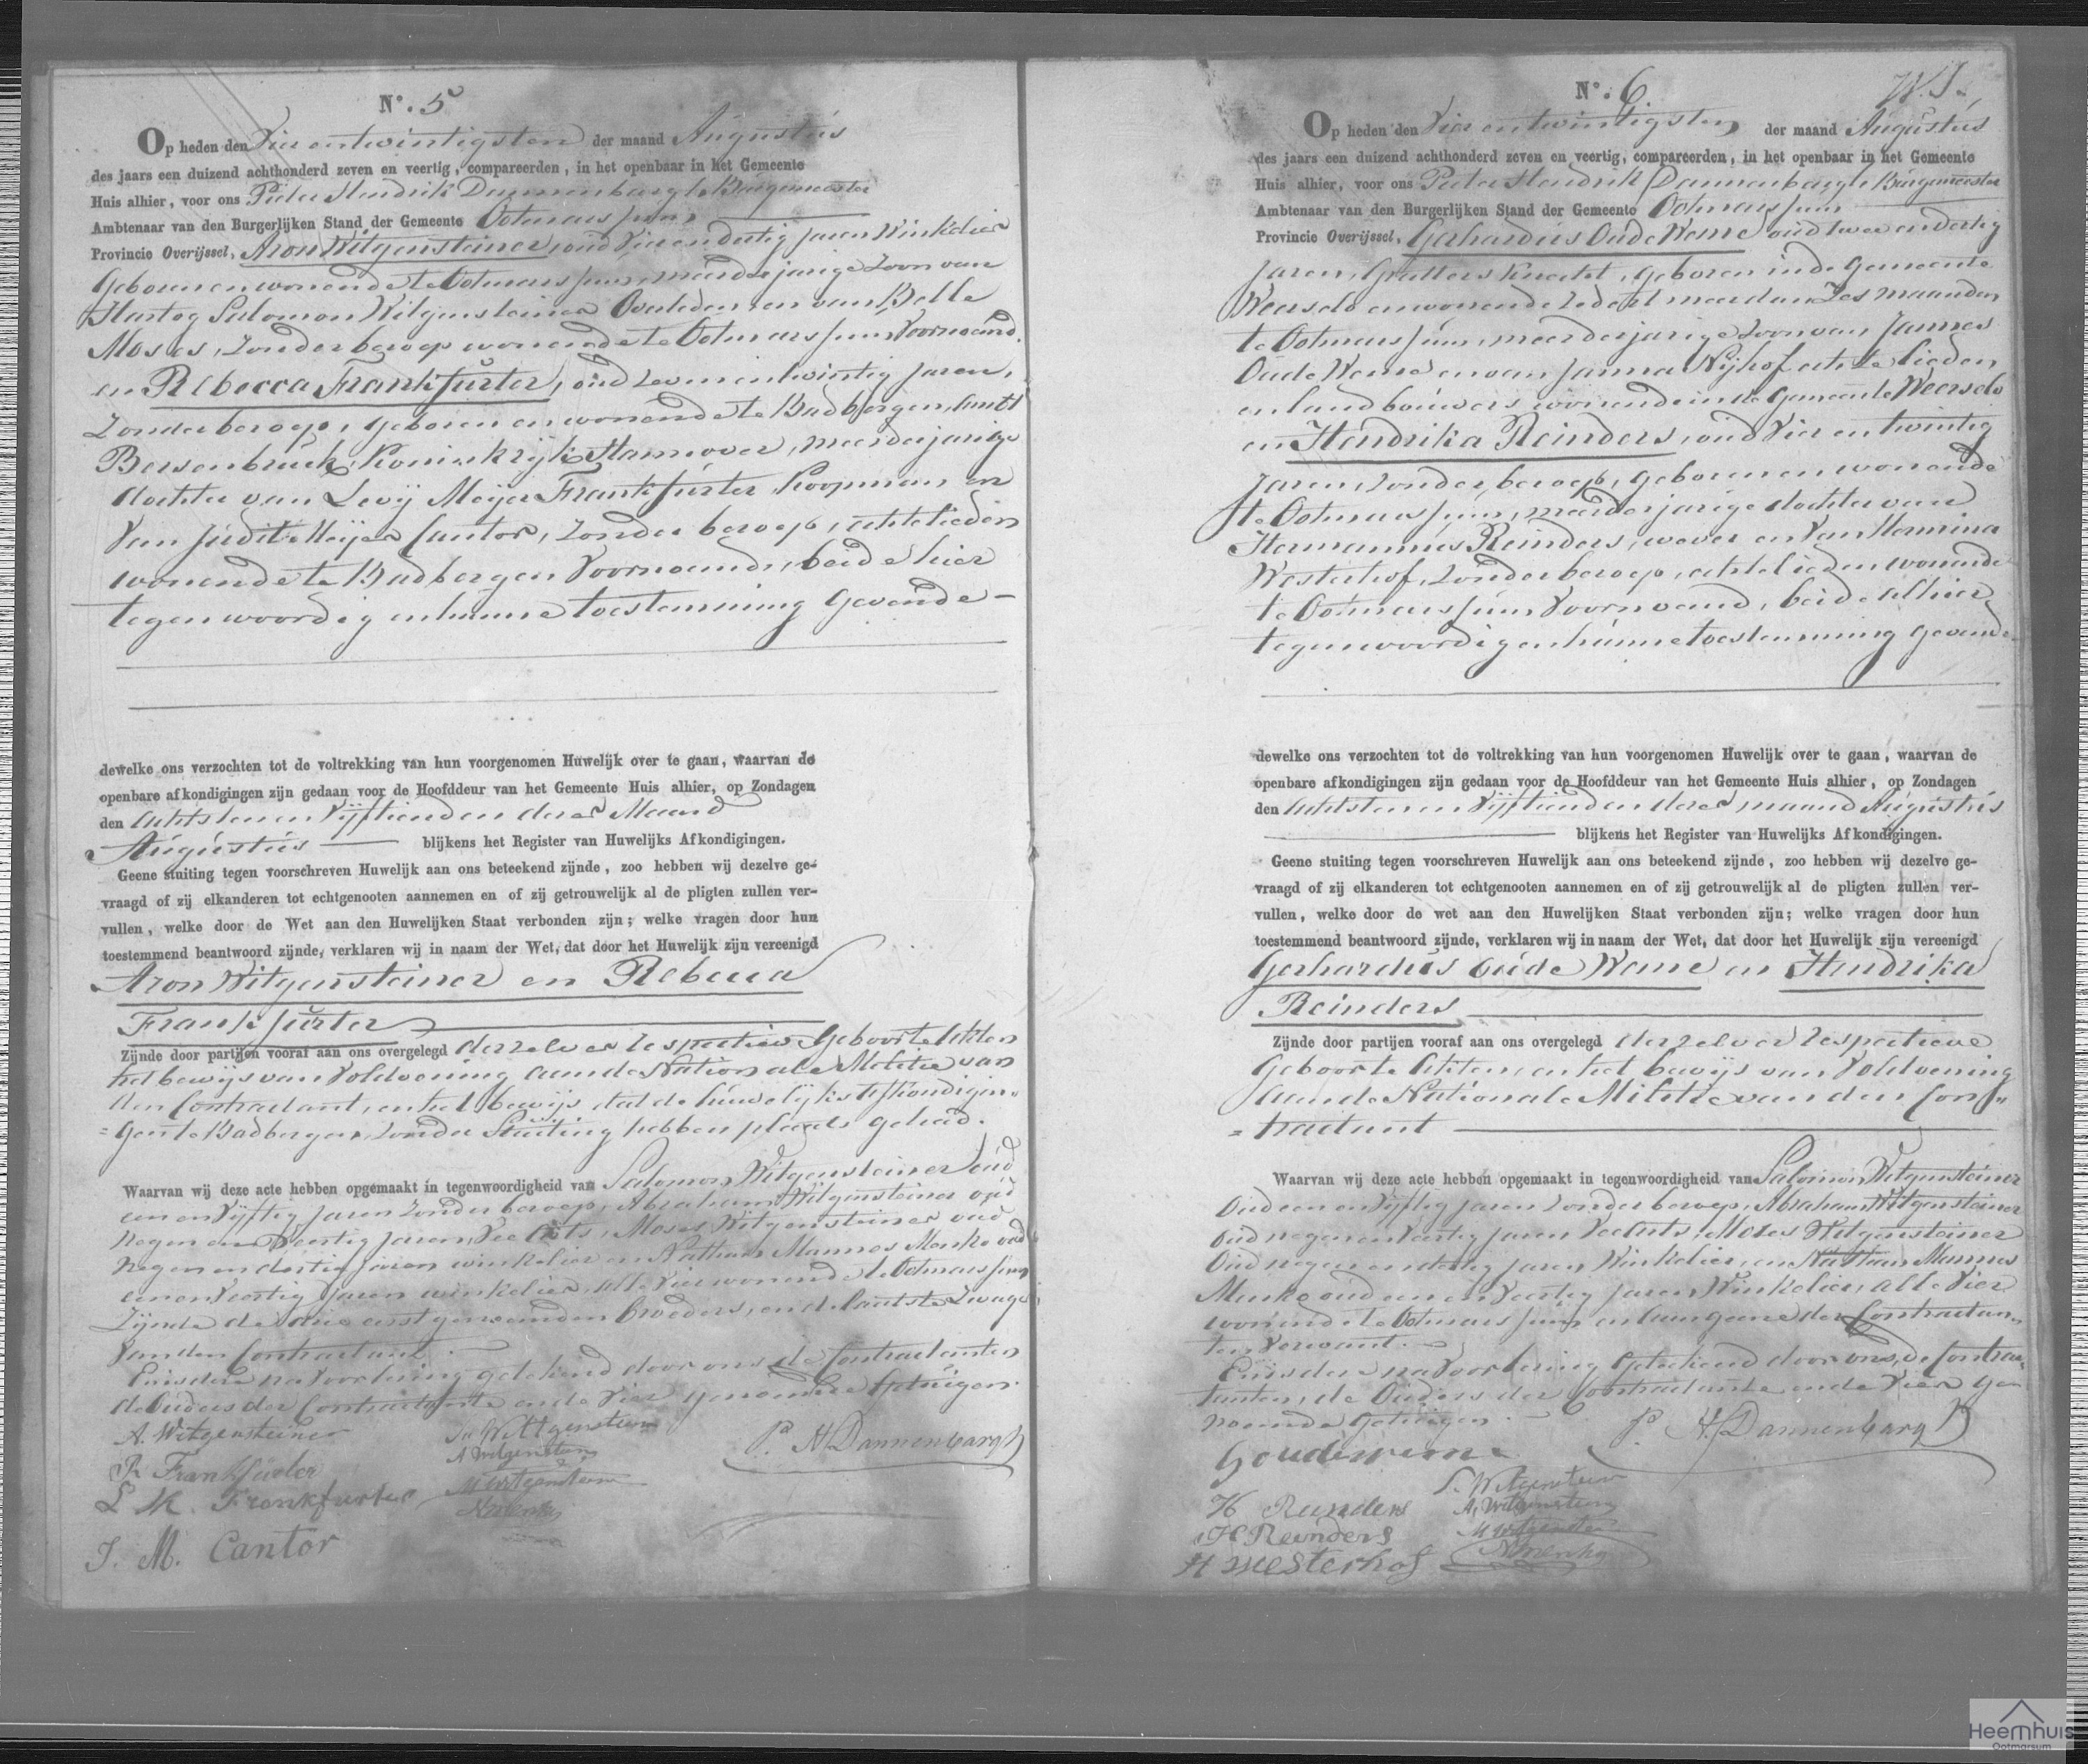 N°. 5
Op heden den Vier en twintigsten der maand Augustus
des jaars een duizend achthonderd zeven en veertig, compareerden, in het openbaar in het Gemeente
Huis alhier, voor ons Pieter Hendrik Dannenbargh Burgemeester
Ambtenaar van den Burgerlijken Stand der Gemeente Ootmarssum
Provincie Overijssel, Aron Witgensteiner, oud Vier en dertig jaren Winkelier
Geboren en wonende te Ootmarssum, meerderjarige Zoon van
Hartog Salomon Witgensteiner Overleden en van Belle
Moses, zonder beroep wonende te Ootmarssum Voornoemd.
en Rebecca Frankfurter, oud zeven en twintig jaren,
Zonder beroep, geboren en wonende te Badbergen, Amtl
Bersenbruck, Koninkrijk Hannover, meerderjarige
dochter van Levij Meijer Frankfurter, Koopman en
Van Judit Meijer Cantor, Zonder beroep, echtelieden
wonende te Badbergen Voornoemd, beide hier
tegenwoordig en hunne toestemming gevende —
dewelke ons verzochten tot de voltrekking van hun voorgenomen Huwelijk over te gaan, waarvan de
openbare afkondigingen zijn gedaan voor de Hoofddeur van het Gemeente Huis alhier, op Zondagen
den Achtsten en Vijftienden dezer Maand
Augustus blijkens het Register van Huwelijks Afkondigingen.
Geene stuiting tegen voorschreven Huwelijk aan ons beteekend zijnde, zoo hebben wij dezelve ge-
vraagd of zij elkanderen tot echtgenooten aannemen en of zij getrouwelijk al de pligten zullen ver-
vullen, welke door de Wet aan den Huwelijken Staat verbonden zijn; welke vragen door hun
toestemmend beantwoord zijnde, verklaren wij in naam der Wet, dat door het Huwelijk zijn vereenigd
Aron Witgensteiner en Rebecca
Frankfurter
Zijnde door partijen vooraf aan ons overgelegd derzelver respective Geboorte Akten
het bewijs van Voldoening aan de Nationale Militie van
den Contractant, en het bewijs dat de huwelijks Afkondigin-
= gen te Badbergen, zonder Stuiting hebben plaats gehad.
Waarvan wij deze acte hebben opgemaakt in tegenwoordigheid van Salomon Witgensteiner oud
een en Vijftig jaren Zonder beroep, Abraham Witgensteiner oud
Negen en Veertig jaren, Vee Arts, Moses Witgensteiner oud
Negen en dertig jaren winkelier en Nathan Mannes Menko oud
een en Veertig jaren winkelier, alle Vier wonende te Ootmarssum
Zijnde de drie eerstgenoemden broeders, en de laatste Zwager
Van den Contractant.
Enis deze na Voorlezing getekend door ons, de Contractanten
de Ouders der Contractante en de Vier genoemde getuigen.
A. Witgensteiner
R Frankfurter
L M. Frankfurter
J. M. Cantor
S. Wittgenstein
A Witgenstein
M Witgenstein
N Menko
P. H. Dannenbargh
N°. 6
Op heden den Vier en twintigsten der maand Augustus
des jaars een duizend achthonderd zeven en veertig, compareerden, in het openbaar in het Gemeente
Huis alhier, voor ons Pieter Hendrik Dannenbargh Burgemeester
Ambtenaar van den Burgerlijken Stand der Gemeente Ootmarssum
Provincie Overijssel, Gerhardus Oude Weme oud twee en dertig
Jaren, Grutters knecht, geboren in de Gemeente
Weerselo en wonende zedert meer dan Zes maanden
te Ootmarssum, meerderjarige Zoon van Jannes
Oude Weme en van Janna Nijhof echtelieden
en landbouwers wonende in de Gemeente Weerselo
en Hendrika Reinders, oud Vier en twintig
Jaren, zonder beroep, geboren en wonende
te Ootmarssum, meerderjarige dochter van
Hermannus Reinders, wever en Van Hermina
Westerhof, Zonder beroep, echtelieden wonende
te Ootmarssum Voornoemd, beide alhier
tegenwoordig en hunne toestemming gevende
dewelke ons verzochten tot de voltrekking van hun voorgenomen Huwelijk over te gaan, waarvan de
openbare afkondigingen zijn gedaan voor de Hoofddeur van het Gemeente Huis alhier, op Zondagen
den Achtsten en Vijftienden dezer maand Augustus
blijkens het Register van Huwelijks Afkondigingen.
Geene stuiting tegen voorschreven Huwelijk aan ons beteekend zijnde, zoo hebben wij dezelve ge-
vraagd of zij elkanderen tot echtgenooten aannemen en of zij getrouwelijk al de pligten zullen ver-
vullen, welke door de wet aan den Huwelijken Staat verbonden zijn; welke vragen door hun
toestemmend beantwoord zijnde, verklaren wij in naam der Wet, dat door het Huwelijk zijn vereenigd
Gerhardus Oude Weme en Hendrika
Reinders
Zijnde door partijen vooraf aan ons overgelegd derzelver respectieve
Geboorte Akten, en het bewijs van Voldoening
aan de Nationale Militie van den Con-
= tractant
Waarvan wij deze acte hebben opgemaakt in tegenwoordigheid van Salomon Witgensteiner
Oud een en Vijftig jaren zonder beroep, Abraham Witgensteiner
oud negen en Veertig jaren Vee Arts, Mozes Witgensteiner
Oud negen en dertig jaren, Winkelier, en Nathan Mannes
Menko oud een en Veertig jaren Winkelier, alle Vier
wonende te Ootmarssum en aan geene der Contractan-
ten Verwant.
Enis deze na Voorlezing getekend door ons, de Contrac-
tanten, de Ouders der Contractante en de Vier ge-
noemde getuigen.
G oude weme
H Reinders
H Reinders
H Westerhof
S. Witgenstein
A. Witgenstein
M Witgenstein
N Menko
P. H. Dannenbargh
Heemhuis
Ootmarsum